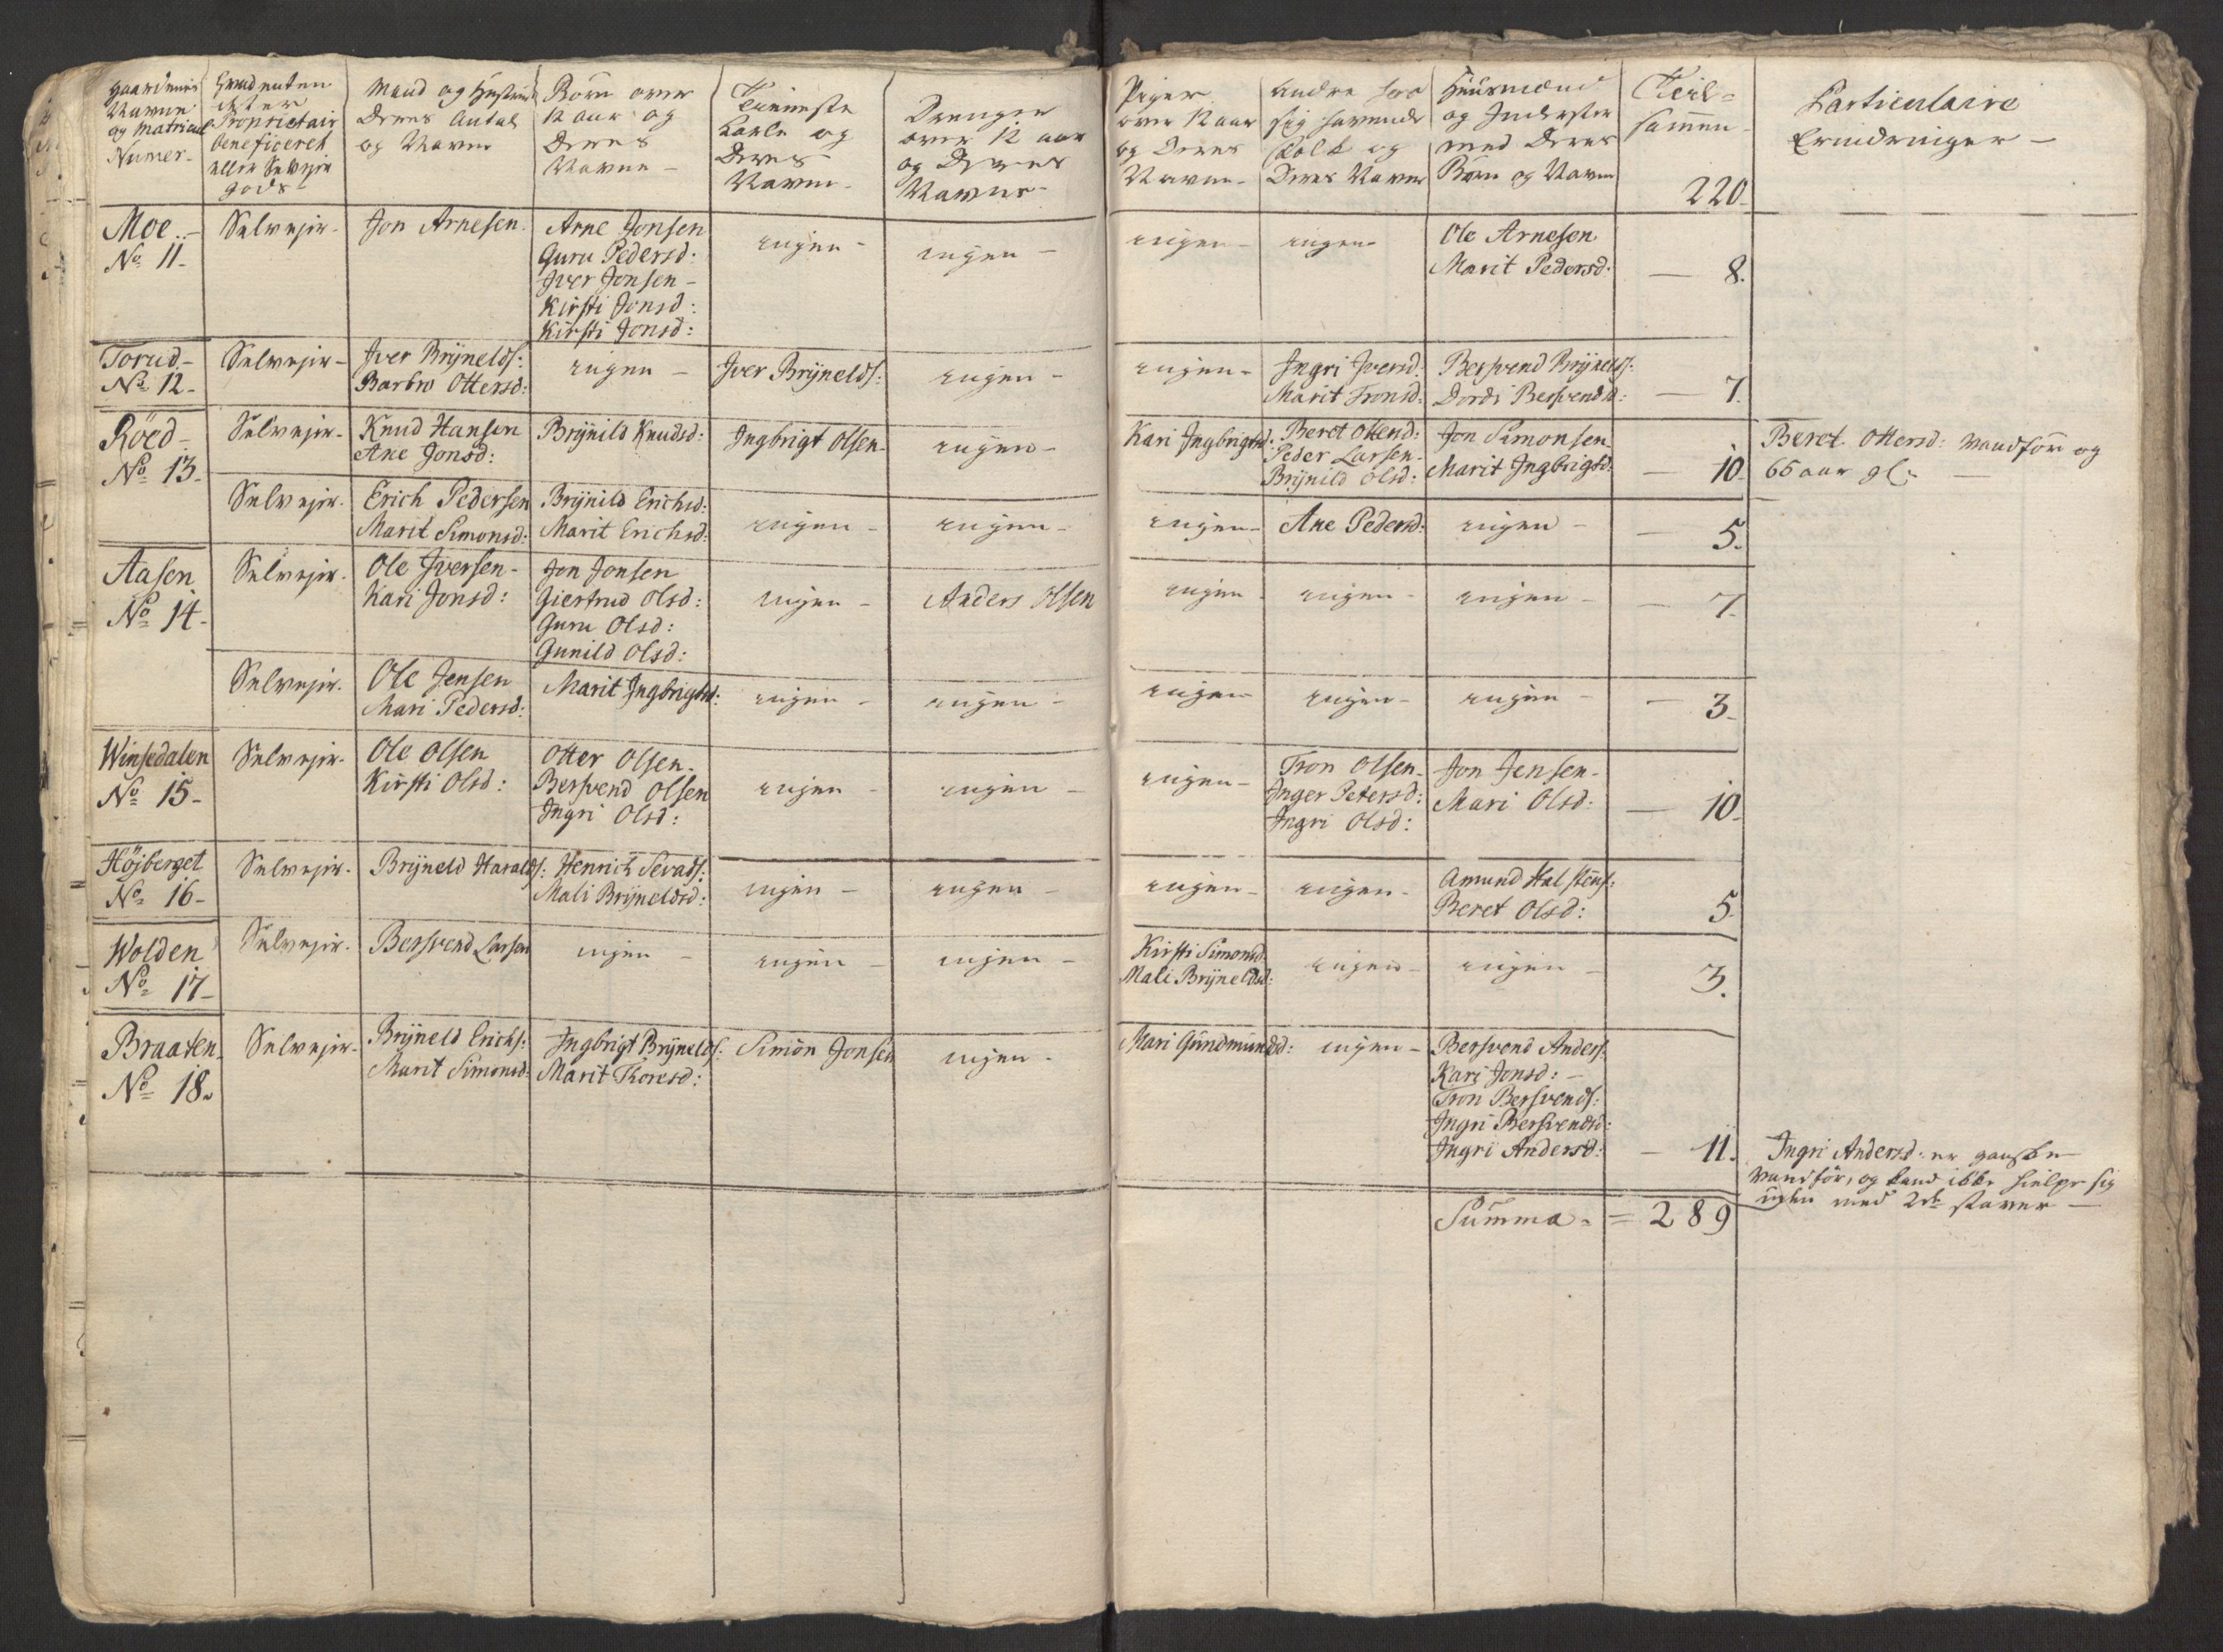 Gaardenes
Navne
og Matricul
Numer-
Hvad enten
det er
Proprietair
beneficeret
eller Selvejer
gods
Mand og Hustrue
Deres Antal
og Navne
Börn over
12 aar og
Deres
Navne -
Tieneste
Karle og
Deres
Navne-
Drenge
over 12 aar
og Deres
Navne-
Piger
over 12 aar
og Deres
Navne-
Andre som
sig havende
Folk og
Deres Navne
Huusmænd
og Inderster
med Deres
Börn og Navne
Til-
sammen-
220-
Particulaire
Erindringer -
Moe.-
No 11-
Selvejer-
Jon Arnesen-
Arne Jonsen
Guru Pedersd:
Jver Jonsen-
Kirsti Jonsd:
Kirsti Jonsd:
ingen-
ingen-
ingen-
ingen-
Ole Arnesen
Marit Pedersd:
- 8.
Torud-
No 12-
Selvejer-
Jver Brÿnelds:
Barbro Ottersd:
ingen-
Jver Brÿnelds:
ingen-
ingen-
Jngri Jversd:
Marit Tronsd:
Bersvend Brÿnelds:
Dordi Bersvendsd:
- 7.
Röed-
No 13-
Selvejer-
Knud Hansen
Ane Jonsd:
Brÿnild Knudsd:
Jngbrigt Olsen-
ingen-
Kari Jngbrigtsd:
Beret Ottersd:
Peder Larsen-
Brÿnild Olsd:
Jon Simonsen
Marit Jngbrigtsd:
- 10-
Beret Ottersd: vandför og
66 aar gl: -
Selvejer-
Erich Pedersen
Marit Simonsd:
Brÿnild Erichsd:
Marit Erichsd:
ingen-
ingen-
ingen-
Ane Pedersd:
ingen-
- 5.
Aasen
No 14-
Selvejer-
Ole Jversen-
Kari Jonsd:
Jon Jonsen
Giertrud Olsd:
Guru Olsd:
Gunild Olsd:
ingen-
Anders Olsen
ingen-
ingen-
ingen-
- 7.
Selvejer-
Ole Jensen
Mari Pedersd:
Marit Jngbrigtsd:
ingen-
ingen-
ingen-
ingen-
ingen-
- 3-
Winsedalen
No 15-
Selvejer-
Ole Olsen
Kirsti Olsd:
Otter Olsen-
Bersvend Olsen
Jngri Olsd:
ingen-
ingen-
ingen-
Tron Olsen-
Jnger Petersd:
Jngri Olsd:
Jon Jensen-
Mari Olsd:
- 10-
Höjberget
No 16-
Selvejer-
Brÿneld Haralds:
Henrich Sevads:
Mali Brÿneldsd:
ingen-
ingen-
ingen-
ingen-
Amund Halstens:
Beret Olsd:
5-
Wolden
No 17-
Selvejer-
Bersvend Larsen
ingen-
ingen-
ingen-
Kirsti Simonsd:
Mali Brÿneldsd:
ingen-
ingen-
3.
Braaten-
No 18.
Selvejer-
Brÿneld Erichs:
Marit Simonsd:
Jngbrigt Brÿnelds:
Marit Thoresd:
Simon Jonsen
ingen-
Mari Gundmundsd:
ingen-
Bersvend Anders:
Kari Jonsd: -
Tron Bersvends:
Jngri Bersvendsd:
Jngri Andersd:
- 11.
Jngri Andersd: er ganske
vandför, og kand ikke hielpe sig
uden med 2de staver -
Summa - = 289